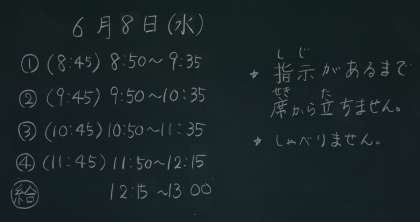 6月8日(水)
① (8:45) 8:50〜9:35
② (9:45) 9:50〜10:35
③ (10:45) 10:50〜11:35
④ (11:45) 11:50〜12:15
給 12:15〜13:00
しじ
* 指示があるまで
せき た
席から立ちません。
* しゃべりません。